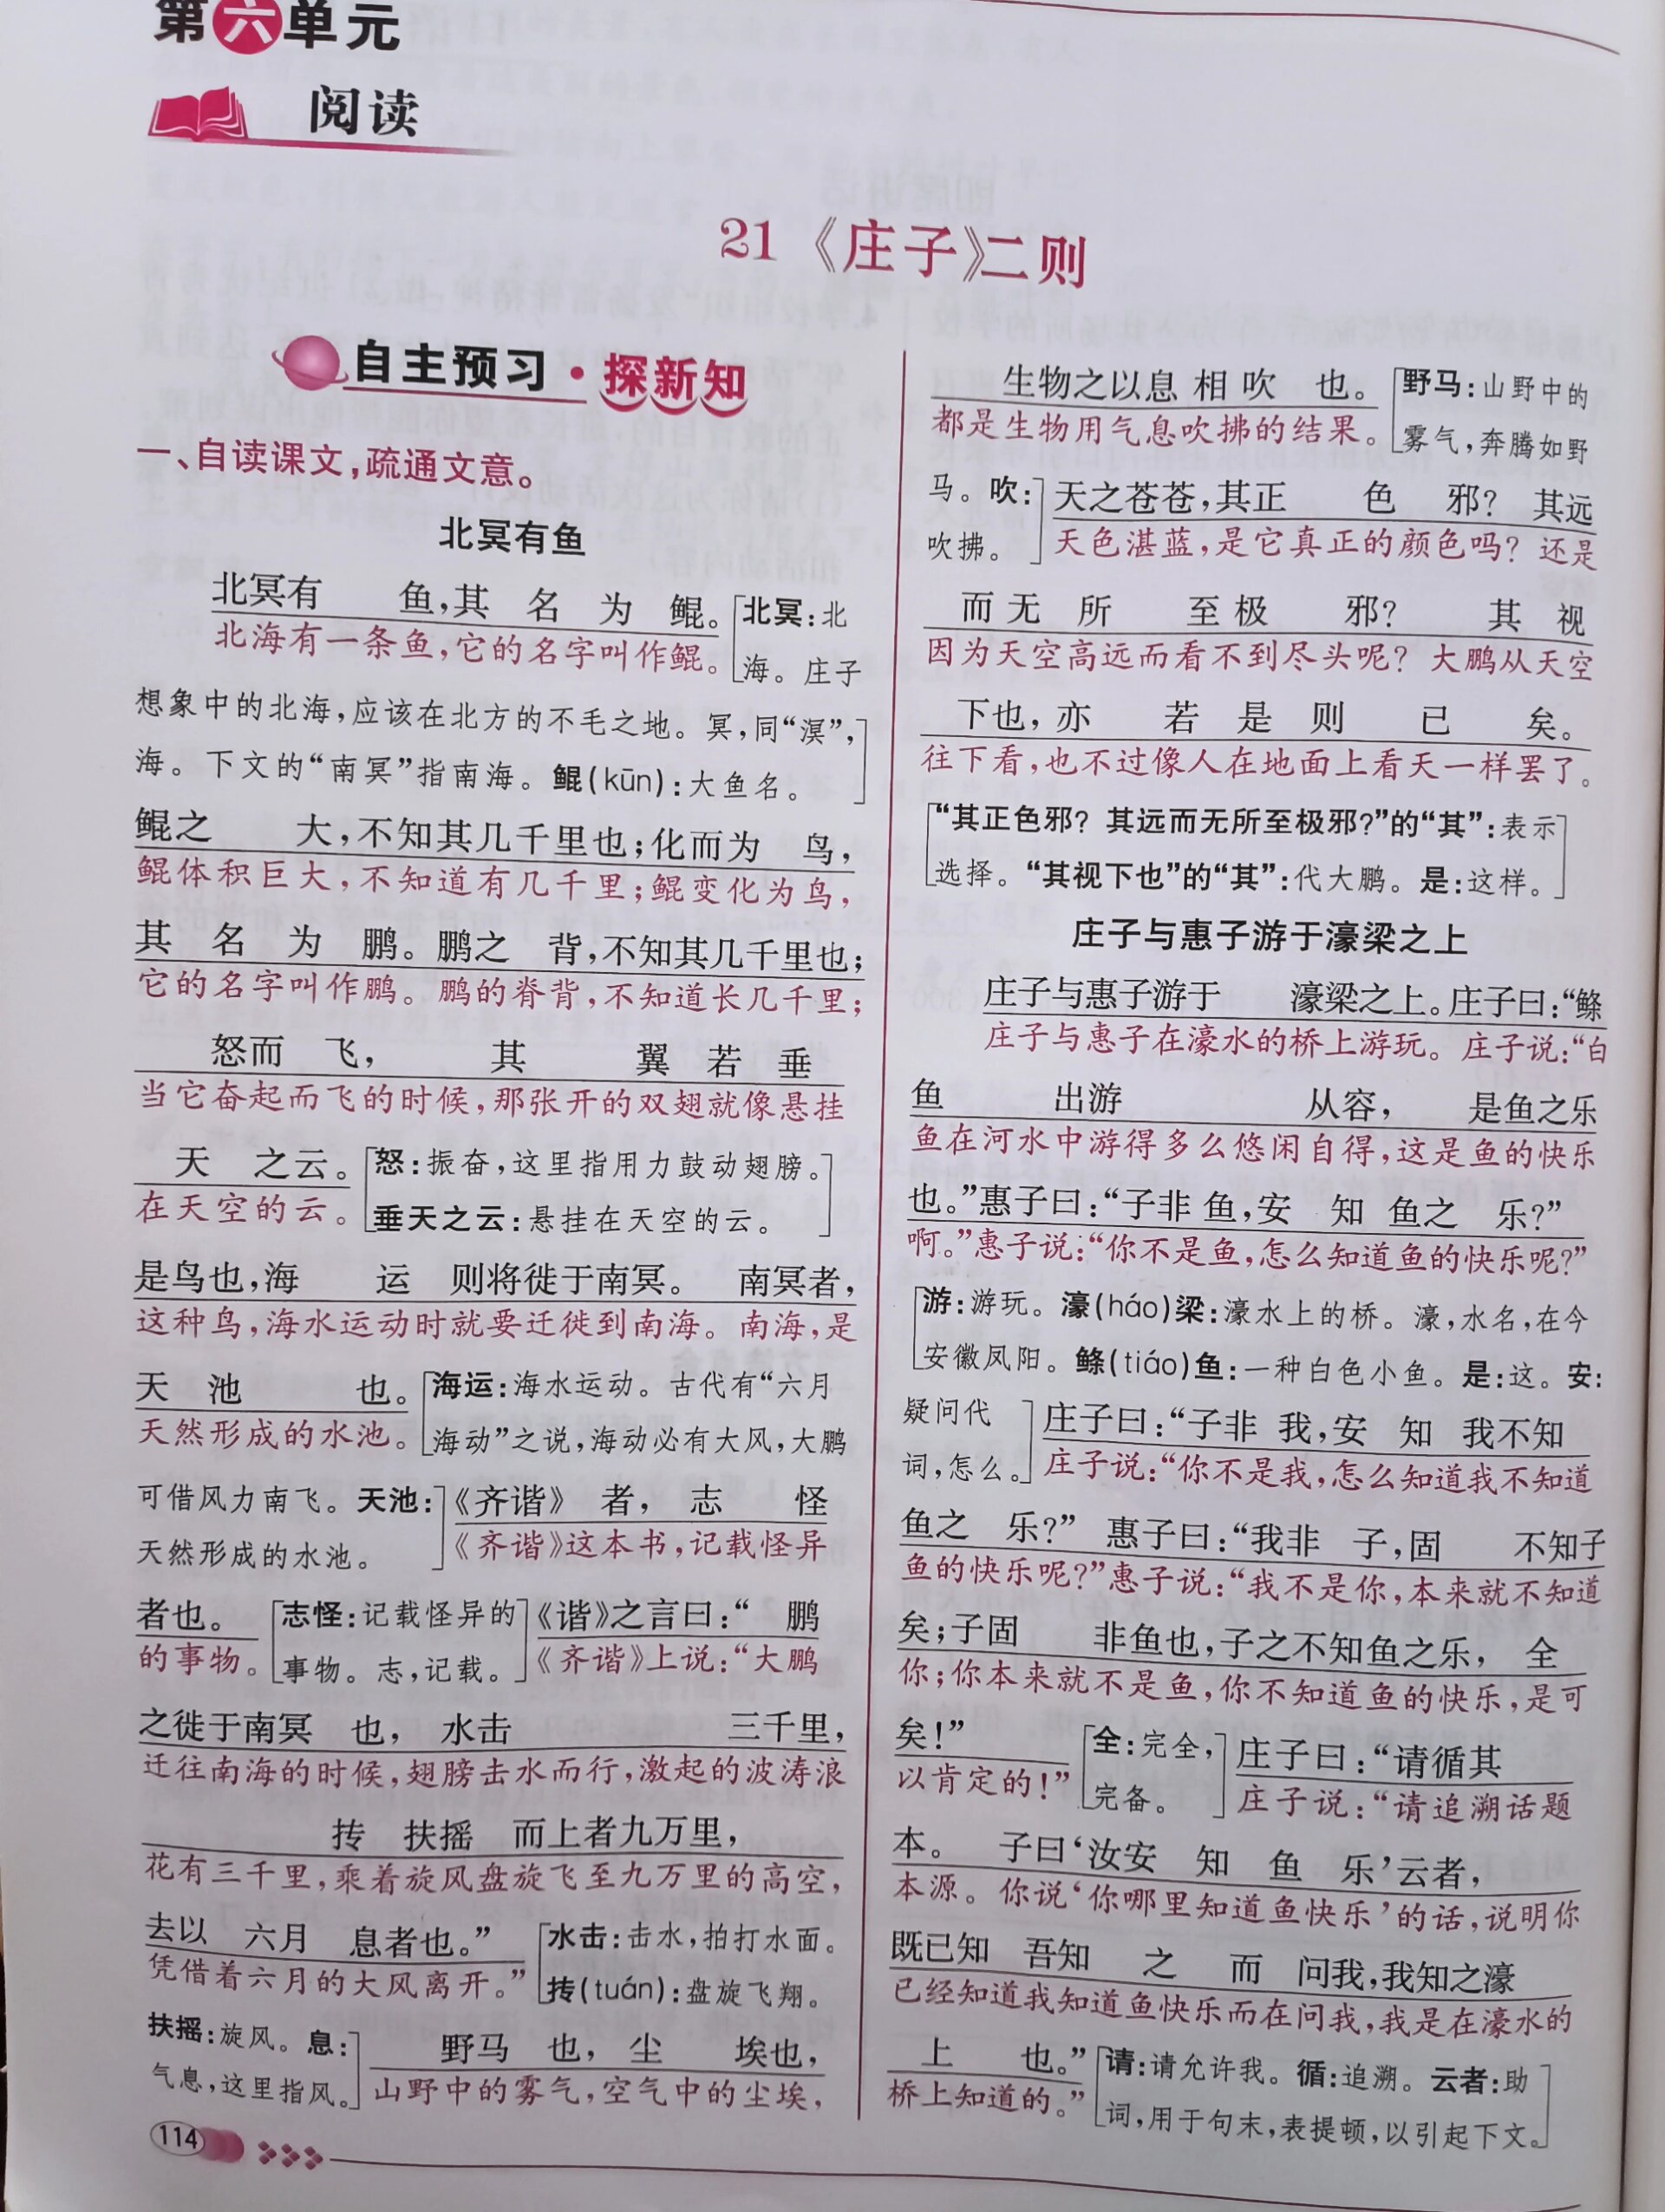 第六单元
阅读
21《庄子》二则
自主预习·探新知
一、自读课文,疏通文意。
北冥有鱼
北冥有 鱼,其 名 为 鲲。[北冥:北
北海有一条鱼,它的名字叫作鲲。 海。庄子
想象中的北海,应该在北方的不毛之地。冥,同“溟”,
海。下文的“南冥”指南海。鲲(kūn):大鱼名。]
鲲之 大,不知其几千里也;化而为 鸟,
鲲体积巨大,不知道有几千里;鲲变化为鸟,
其 名 为 鹏。鹏之 背,不知其几千里也;
它的名字叫作鹏。鹏的脊背,不知道长几千里;
怒而 飞, 其 翼 若 垂
当它奋起而飞的时候,那张开的双翅就像悬挂
天 之云。[怒:振奋,这里指用力鼓动翅膀。
在天空的云。 垂天之云:悬挂在天空的云。]
是鸟也,海 运 则将徙于南冥。 南冥者,
这种鸟,海水运动时就要迁徙到南海。南海,是
天 池 也。[海运:海水运动。古代有“六月
天然形成的水池。 海动”之说,海动必有大风,大鹏
可借风力南飞。天池:]《齐谐》 者, 志 怪
天然形成的水池。 《齐谐》这本书,记载怪异
者也。 [志怪:记载怪异的]《谐》之言曰:“ 鹏
的事物。 事物。志,记载。 《齐谐》上说:“大鹏
之徙于南冥 也, 水击 三千里,
迁往南海的时候,翅膀击水而行,激起的波涛浪
抟 扶摇 而上者九万里,
花有三千里,乘着旋风盘旋飞至九万里的高空,
去以 六月 息者也。” [水击:击水,拍打水面。
凭借着六月的大风离开。” 抟(tuán):盘旋飞翔。
扶摇:旋风。息:] 野马 也, 尘 埃也,
气息,这里指风。 山野中的雾气,空气中的尘埃,
114
生物之以息 相 吹 也。[野马:山野中的
都是生物用气息吹拂的结果。 雾气,奔腾如野
马。吹:]天之苍苍,其正 色 邪? 其远
吹拂。 天色湛蓝,是它真正的颜色吗?还是
而 无 所 至 极 邪? 其 视
因为天空高远而看不到尽头呢?大鹏从天空
下也,亦 若 是 则 已 矣。
往下看,也不过像人在地面上看天一样罢了。
[“其正色邪?其远而无所至极邪?”的“其”:表示
选择。“其视下也”的“其”:代大鹏。是:这样。]
庄子与惠子游于濠梁之上
庄子与惠子游于 濠梁之上。庄子曰:“鲦
庄子与惠子在濠水的桥上游玩。庄子说:“白
鱼 出游 从容, 是鱼之乐
鱼在河水中游得多么悠闲自得,这是鱼的快乐
也。”惠子曰:“子非 鱼,安 知 鱼之 乐?”
啊。”惠子说:“你不是鱼,怎么知道鱼的快乐呢?”
[游:游玩。濠(háo)梁:濠水上的桥。濠,水名,在今
安徽凤阳。鲦(tiáo)鱼:一种白色小鱼。是:这。安:
疑问代 ]庄子曰:“子非 我,安 知 我不知
词,怎么。 庄子说:“你不是我,怎么知道我不知道
鱼之 乐?” 惠子曰:“我非 子,固 不知子
鱼的快乐呢?”惠子说:“我不是你,本来就不知道
矣;子固 非鱼也,子之不知鱼之乐, 全
你;你本来就不是鱼,你不知道鱼的快乐,是可
矣!” [全:完全,]庄子曰:“请循其
以肯定的!” 完备。 庄子说:“请追溯话题
本。 子曰‘汝安 知 鱼 乐’云者,
本源。你说‘你哪里知道鱼快乐’的话,说明你
既已知 吾知 之 而 问我,我知之濠
已经知道我知道鱼快乐而在问我,我是在濠水的
上 也。”[请:请允许我。循:追溯。云者:助
桥上知道的。” 词,用于句末,表提顿,以引起下文。]